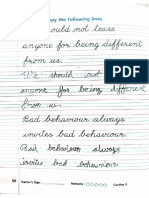 py the following lines.
ould not tease
anyone for being different
from us.
We should not
anyone for being different
from us.
Bad behaviour always
invites bad behaviour.
Bad behaviour always
invites bad behaviour.
66 Teacher's Sign : Remarks : Cursive 5